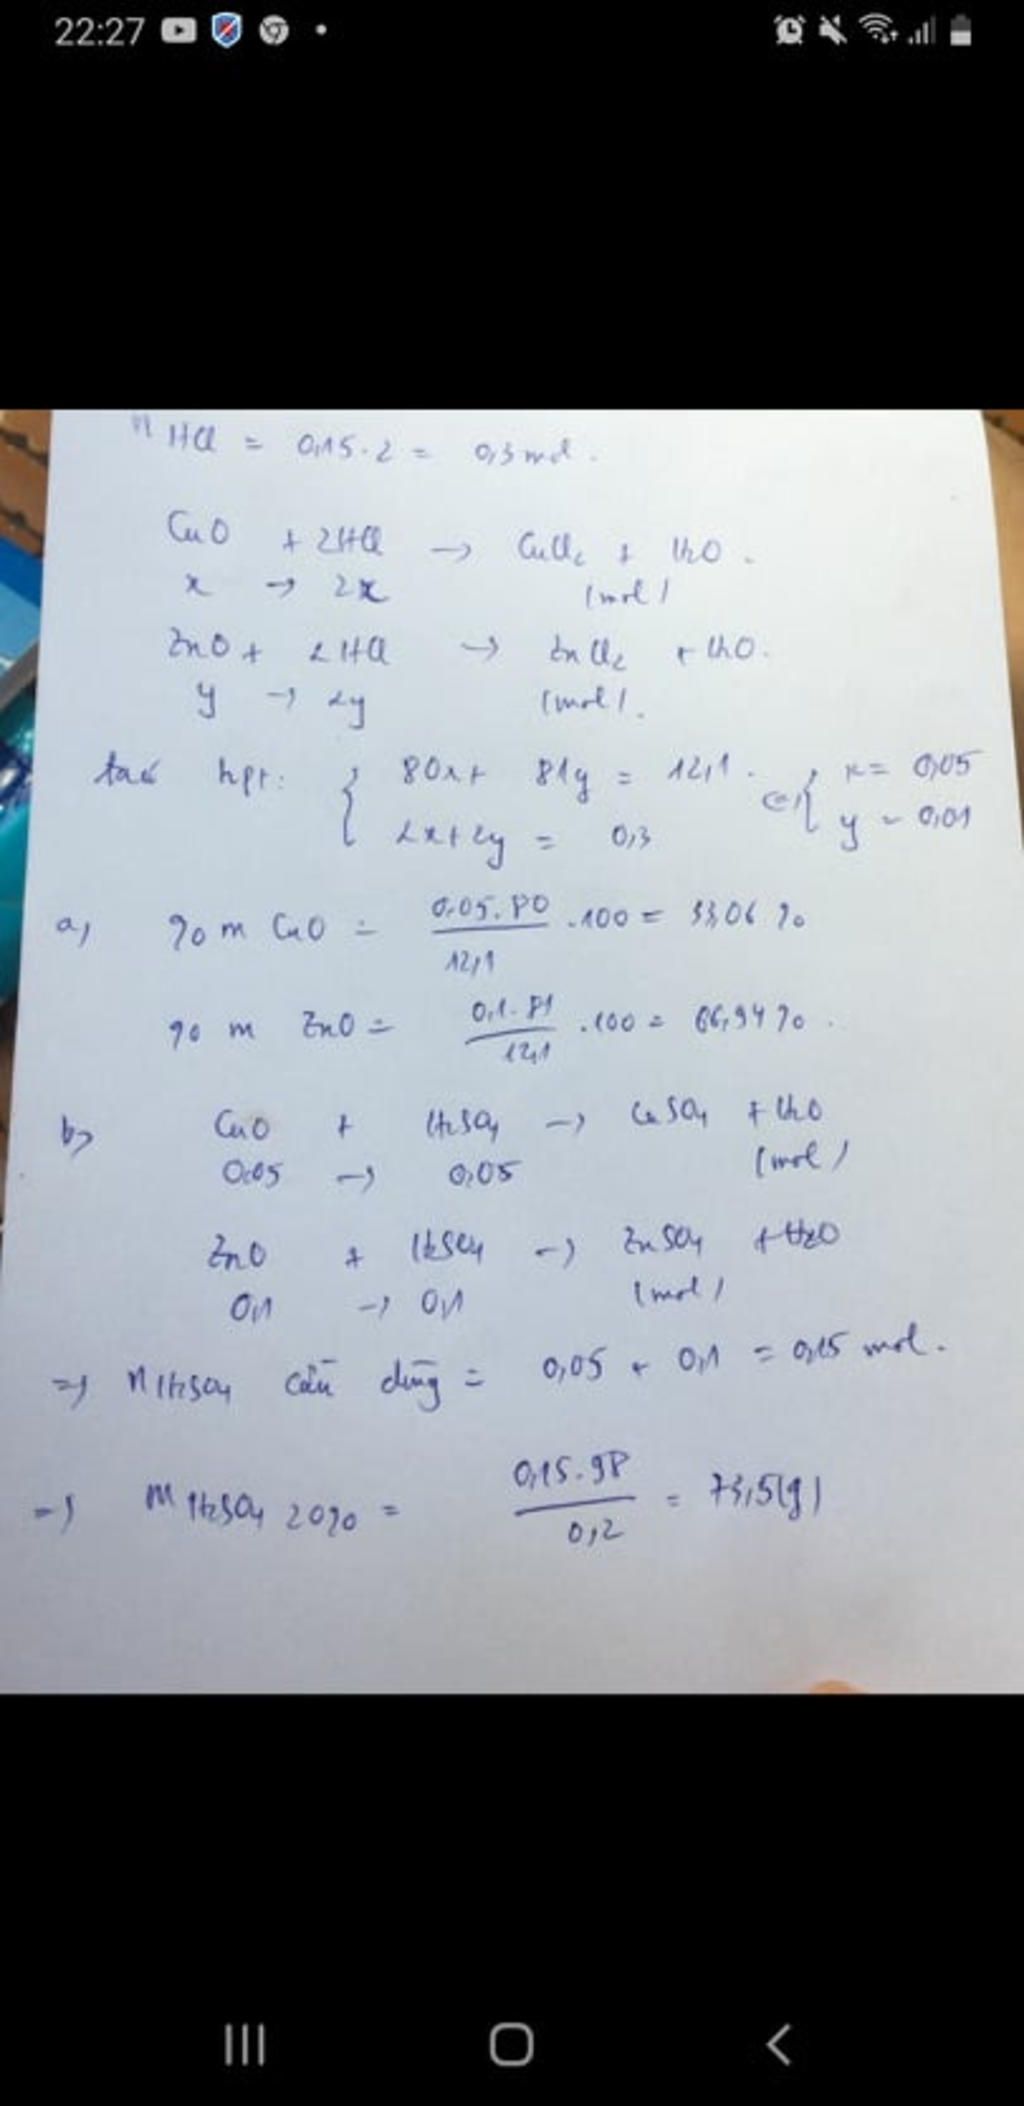 22:27
n HCl = 0,15.2 = 0,3 mol.
CuO + 2HCl → CuCl2 + H2O.
x → 2x (mol)
ZnO + 2HCl → ZnCl2 + H2O.
y → 2y (mol).
ta có hpt: { 80x + 81y = 12,1. ⇔ { x = 0,05
2x + 2y = 0,3 y = 0,01
a, % m CuO = 0,05.80 / 12,1 .100 = 33,06 %
% m ZnO = 0,1.81 / 12,1 .100 = 66,94 %.
b, CuO + H2SO4 → CuSO4 + H2O
0,05 → 0,05 (mol)
ZnO + H2SO4 → ZnSO4 + H2O
0,1 → 0,1 (mol)
=> n H2SO4 cần dùng = 0,05 + 0,1 = 0,15 mol.
=> m H2SO4 20% = 0,15.98 / 0,2 = 73,5(g)